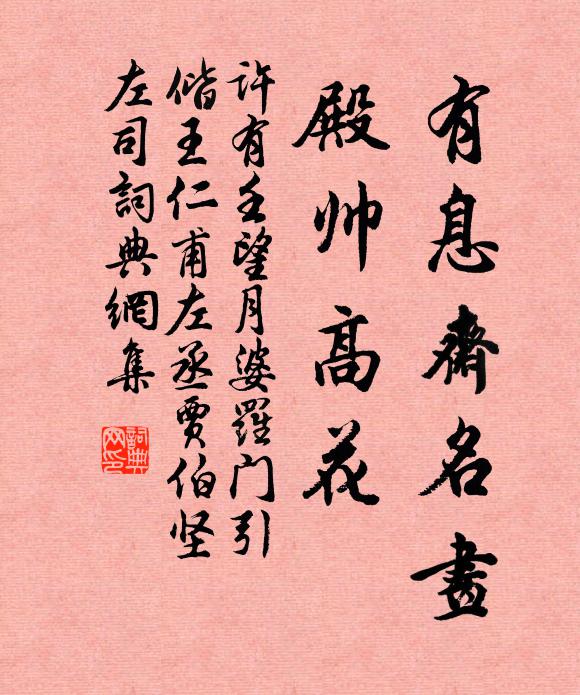 有息齋名畫
殿帅高花
许有壬望月婆羅门引
偕王仁甫左丞贾伯坚
左司詞典網集
詞典
网印